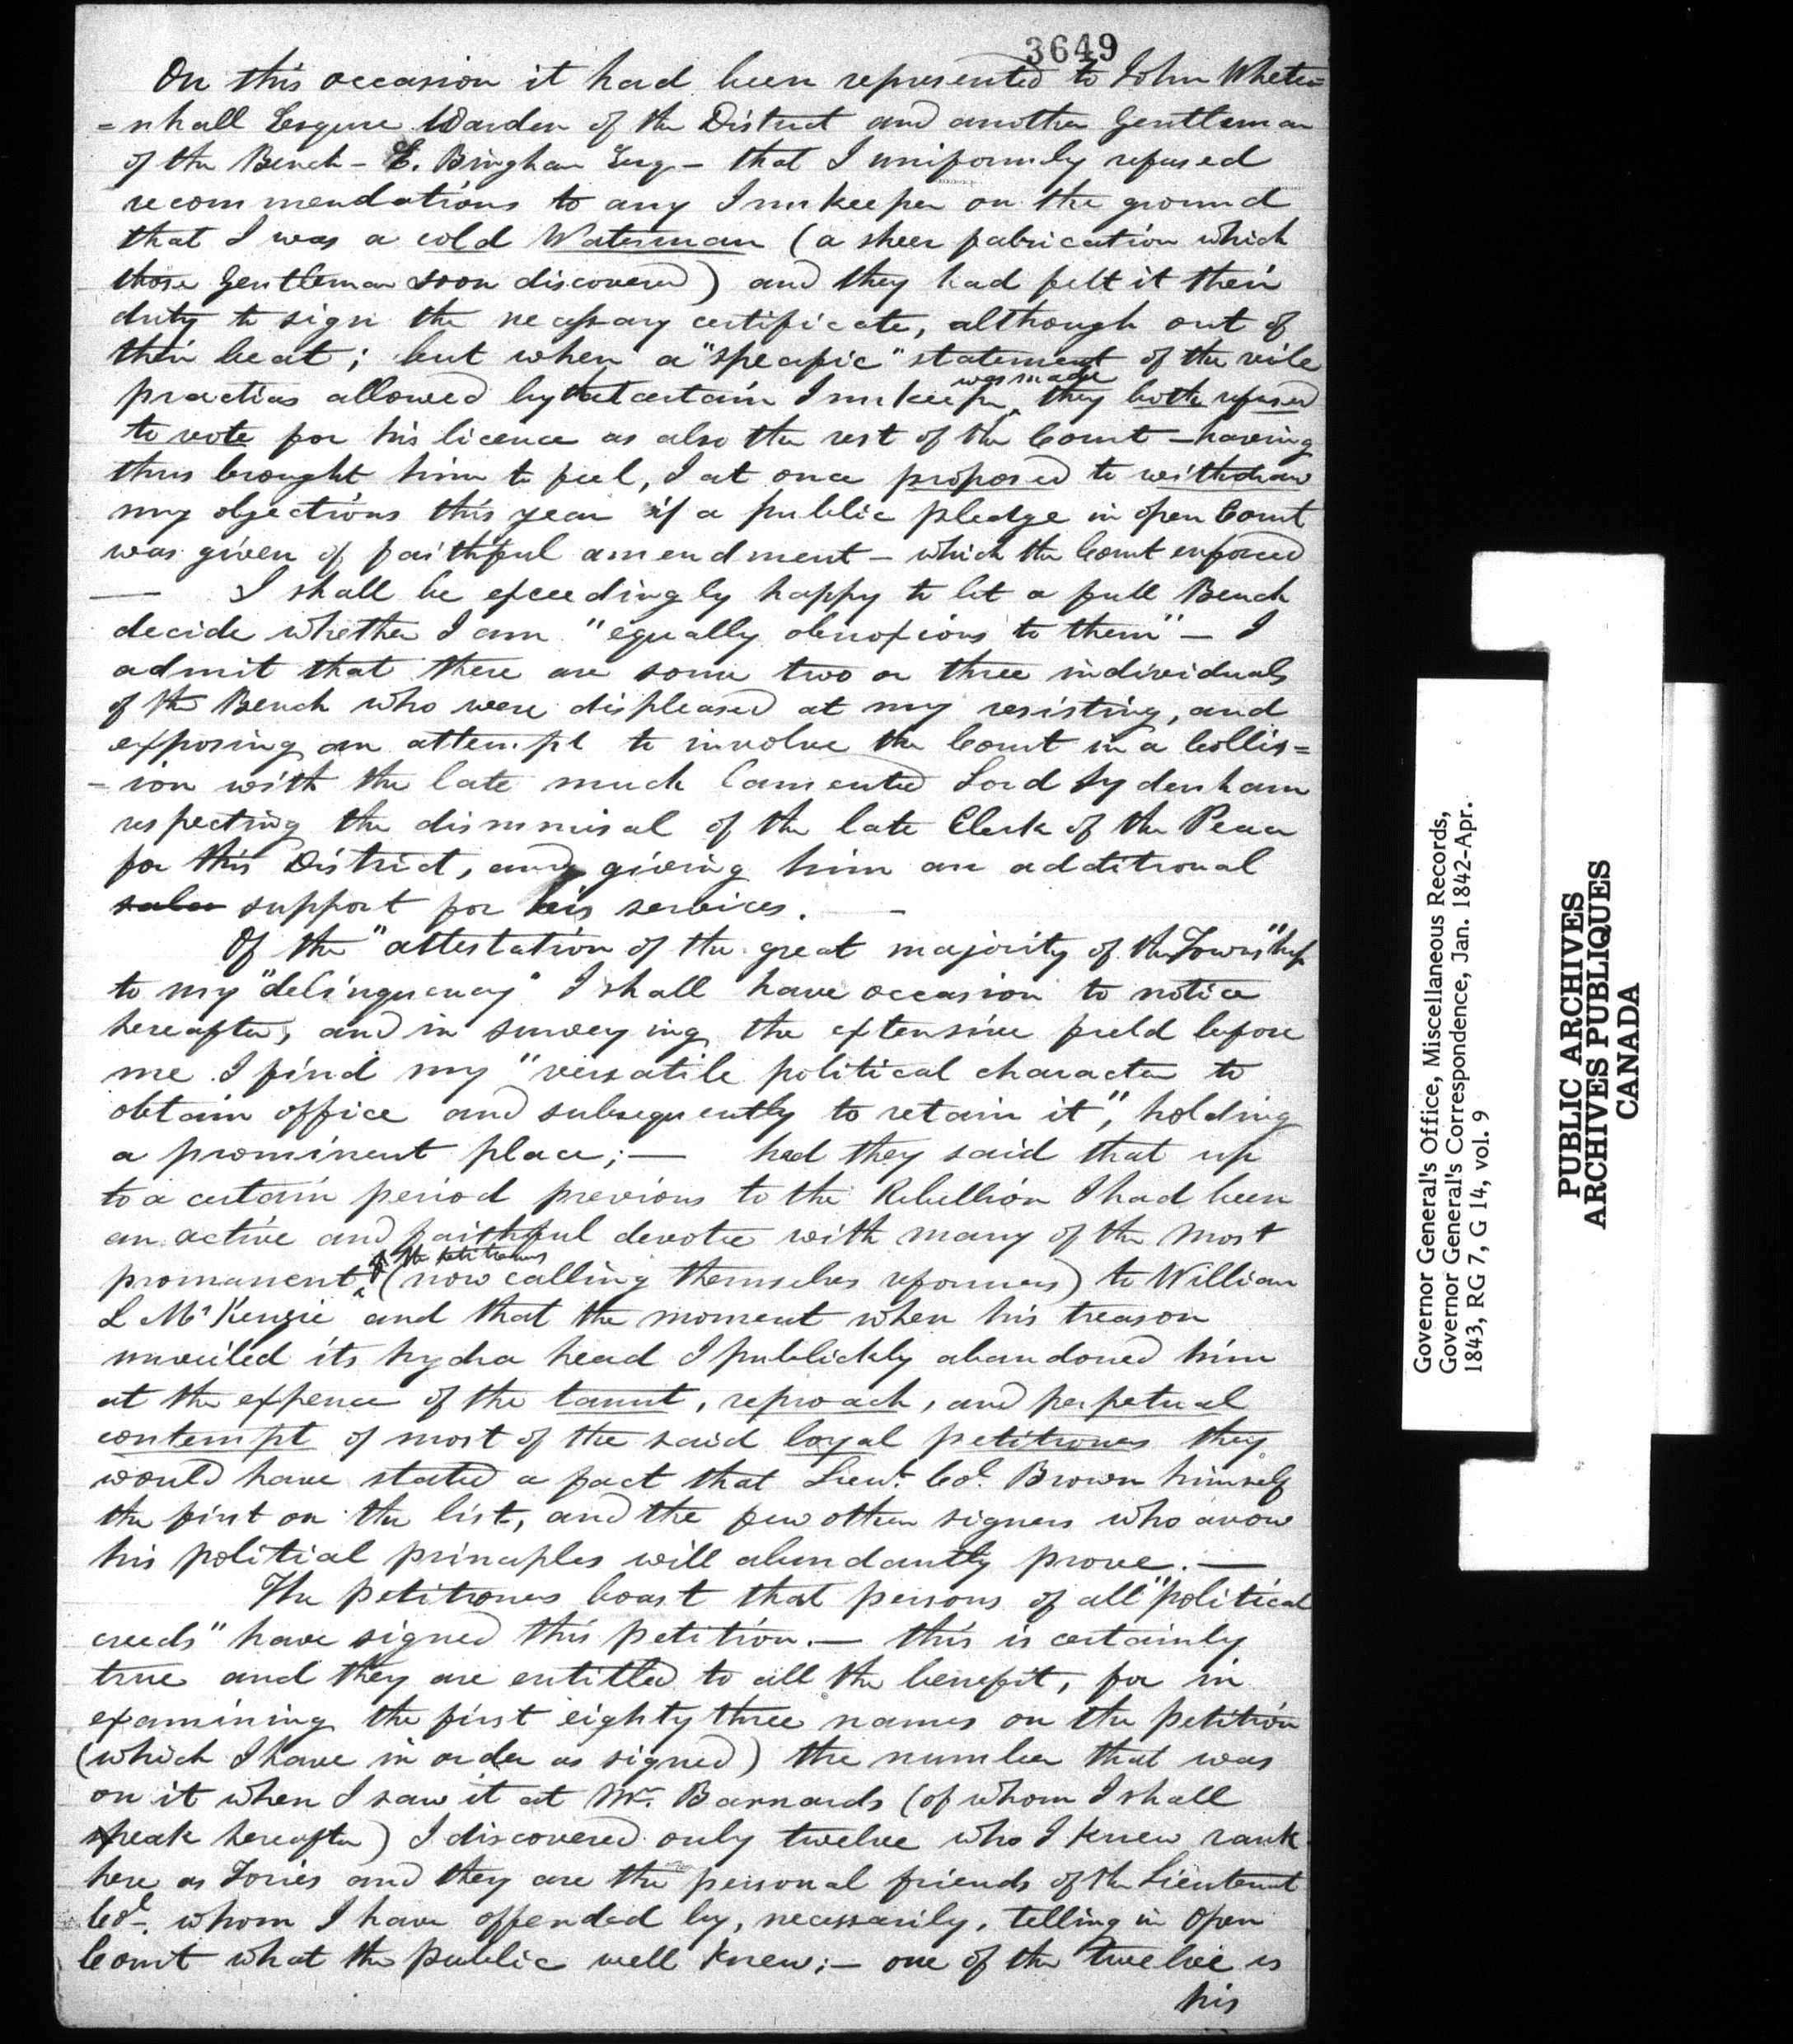 3649
On this occasion it had been represented to John Wheten=
=nhall Esquire Warden of the District and another Gentleman
of the Bench – E. Bingham Esq – that I uniformly refused
recommendations to any Innkeeper on the ground
that I was a cold Waterman (a sheer fabrication which
those Gentleman soon discovered) and they had felt it their
duty to sign the necessary certificate, although out of
their beat; but when a "specific" statement of the vile
practices allowed by that certain Innkeeper was made they both refused
to vote for his licence as also the rest of the Court – having
thus brought him to feel, I at once proposed to withdraw
my objections this year if a public pledge in open Court
was given of faithful amendment – which the Court enforced
— I shall be exceedingly happy to let a full Bench
decide whether I am "equally obnoxious to them" – I
admit that there are some two or three individuals
of the Bench who were displeased at my resisting, and
exposing an attempt to involve the Court in a Collis=
=ion with the late much lamented Lord Sydenham
respecting the dismmisal of the late Clerk of the Peace
for this District, and giving him an additional
support for his services. —
Of the "attestation of the great majority of the Township"
to my "delinquency" I shall have occasion to notice
hereafter, and in surveying the extensive field before
me I find my "versatile political character to
obtain office and subsequently to retain it", holding
a prominent place; — had they said that up
to a certain period previous to the Rebellion I had been
an active and faithful devotee with many of the most
promanent of the petitioners (now calling themselves reformers) to William
L McKenzie and that the moment when his treason
unveiled its hydra head I publickly abandoned him
at the expence of the taunt, reproach, and perpetual
contempt of most of the said loyal petitioners they
would have stated a fact that Lieut. Col. Brown himself
the first on the list, and the few other signers who avow
his politial principles will abundantly prove. —
The petitioners boast that persons of all "political
creeds" have signed this petition. — this is certainly
true and they are entitled to all the benefit, for in
examining the first eighty three names on the petition
(which I have in order as signed) the number that was
on it when I saw it at Mr. Barnards (of whom I shall
speak hereafter) I discovered only twelve who I knew rank
here as Tories and they are the personal friends of the Lieutenant
Col. whom I have offended by, necessarily, telling in Open
Court what the public well knew; – one of the twelve is
his
Governor General's Office, Miscellaneous Records,
Governor General's Correspondence, Jan. 1842-Apr.
1843, RG 7, G 14, vol. 9
PUBLIC ARCHIVES
ARCHIVES PUBLIQUES
CANADA